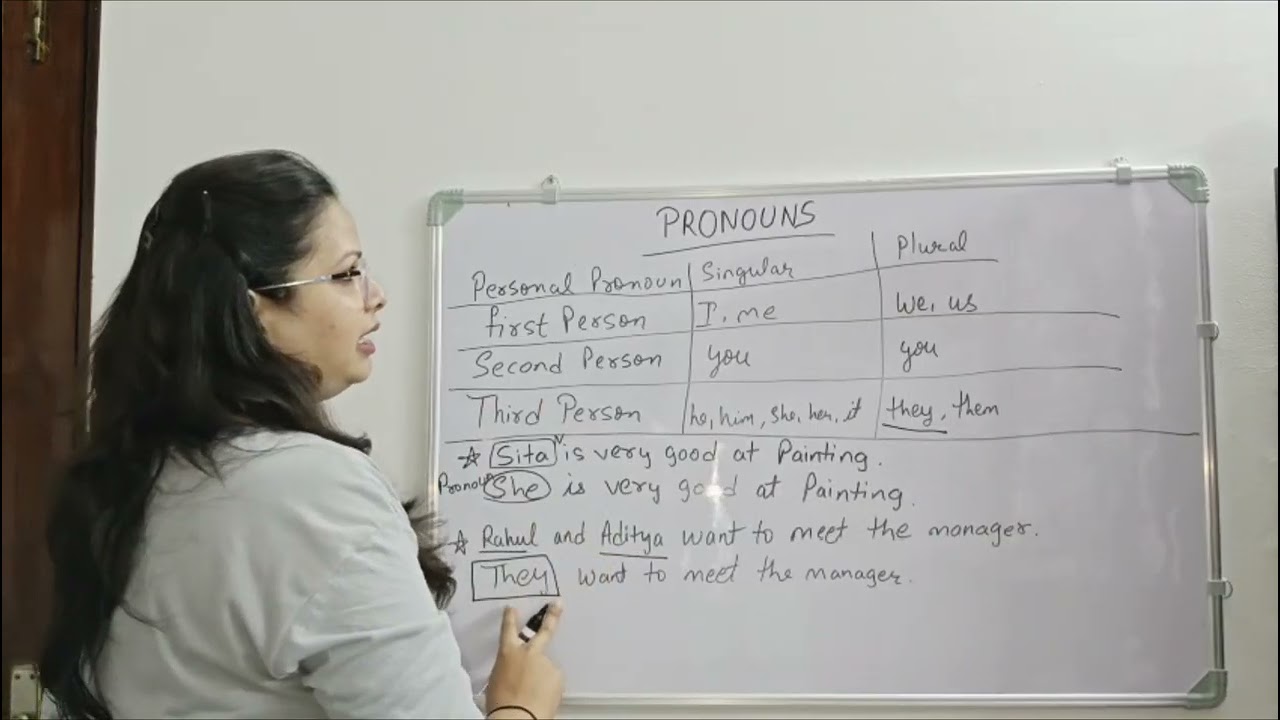 PRONOUNS
Personal Pronoun Singular Plural
first Person I, me We, us
Second Person you you
Third Person he, him, she, her, it they, them
☆ Sita is very good at Painting.
Pronoun She is very good at Painting.
☆ Rahul and Aditya want to meet the manager.
They want to meet the manager.